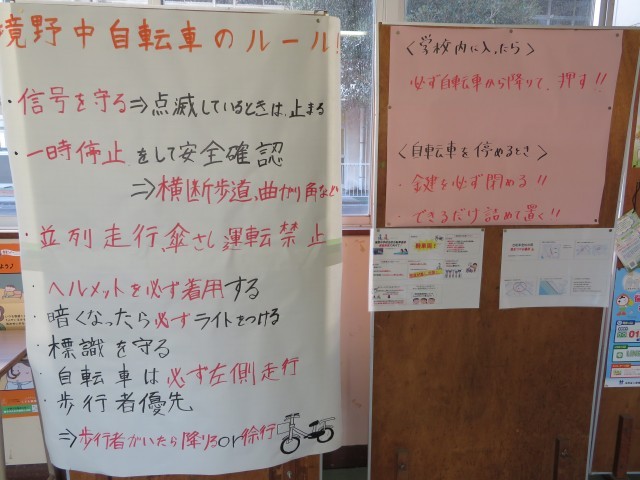 境野中自転車のルール!
・信号を守る⇒点滅しているときは、止まる
・一時停止をして安全確認
⇒横断歩道、曲がり角など
・並列走行、傘さし運転禁止
・ヘルメットを必ず着用する
・暗くなったら必ずライトをつける
・標識を守る
・自転車は必ず左側走行
・歩行者優先
⇒歩行者がいたら降りるor徐行
<学校内に入ったら>
必ず自転車から降りて、押す!!
<自転車を停めるとき>
・鍵を必ず閉める!!
・できるだけ詰めて置く!!